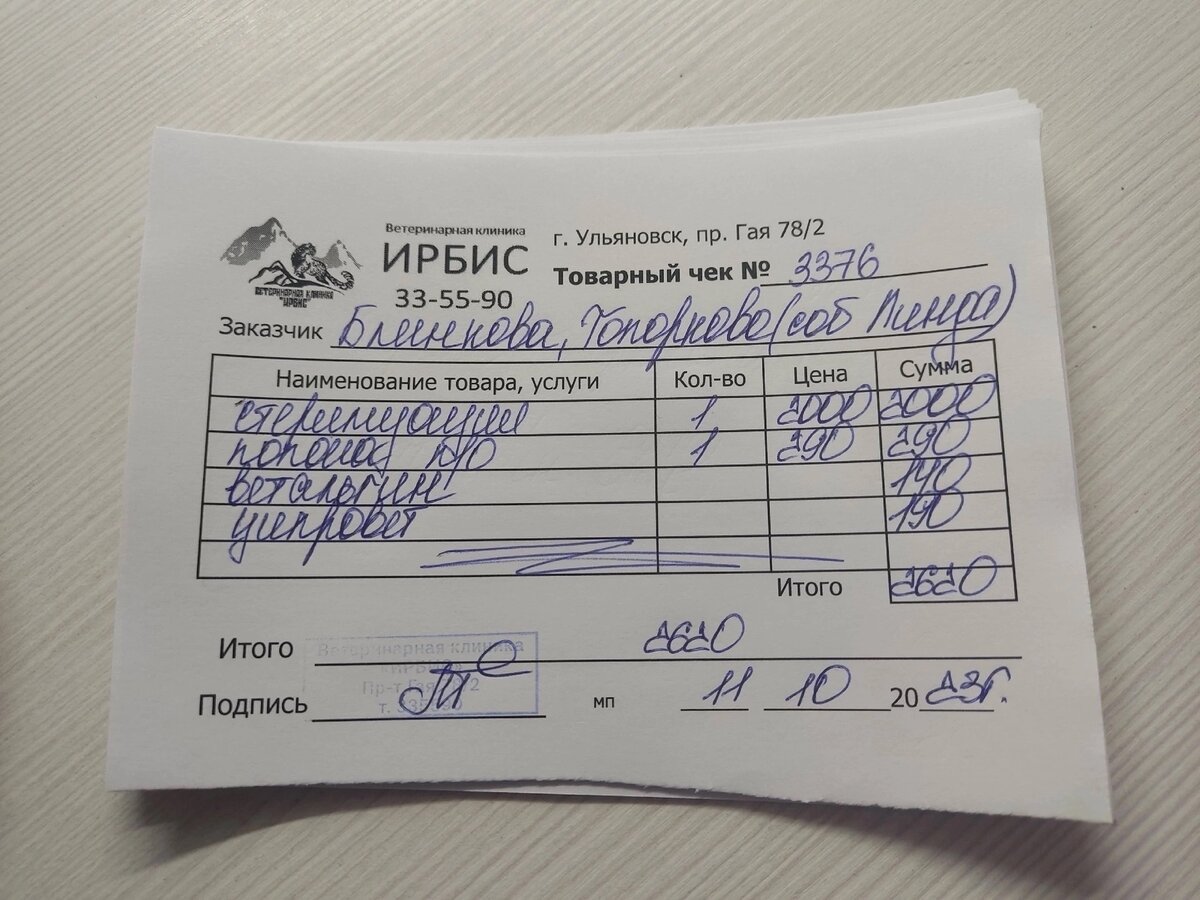 Ветеринарная клиника
ИРБИС
33-55-90
ВЕТЕРИНАРНАЯ КЛИНИКА
"ИРБИС"
г. Ульяновск, пр. Гая 78/2
Товарный чек № 3376
Заказчик Блинкова, Топоркова (соб Линда)
Наименование товара, услуги Кол-во Цена Сумма
стерилизация 1 2000 2000
попона п/о 1 290 290
ветальгин 140
ципровет 190
Итого 2620
Итого 2620
Ветеринарная клиника
«ИРБИС»
Пр-т Гая 78/2
Подпись мп 11 10 20 23г.